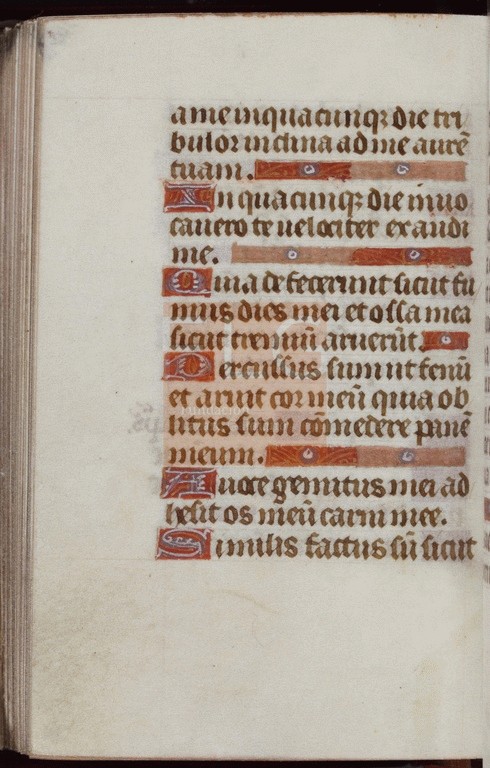 a me in quacunqꝫ die tri
bulor inclina ad me aurē
tuam.
In quacunqꝫ die inuo
cauero te velociter exaudi
me.
Quia defecerunt sicut fu
mus dies mei et ossa mea
sicut cremiū aruerūt.
Percussus sum ut fenū
et aruit cor meū quia ob
litus sum cōmedere panē
meum.
A uoce gemitus mei ad
hesit os meū carni mee.
Similis factus sū sicut
Fundación